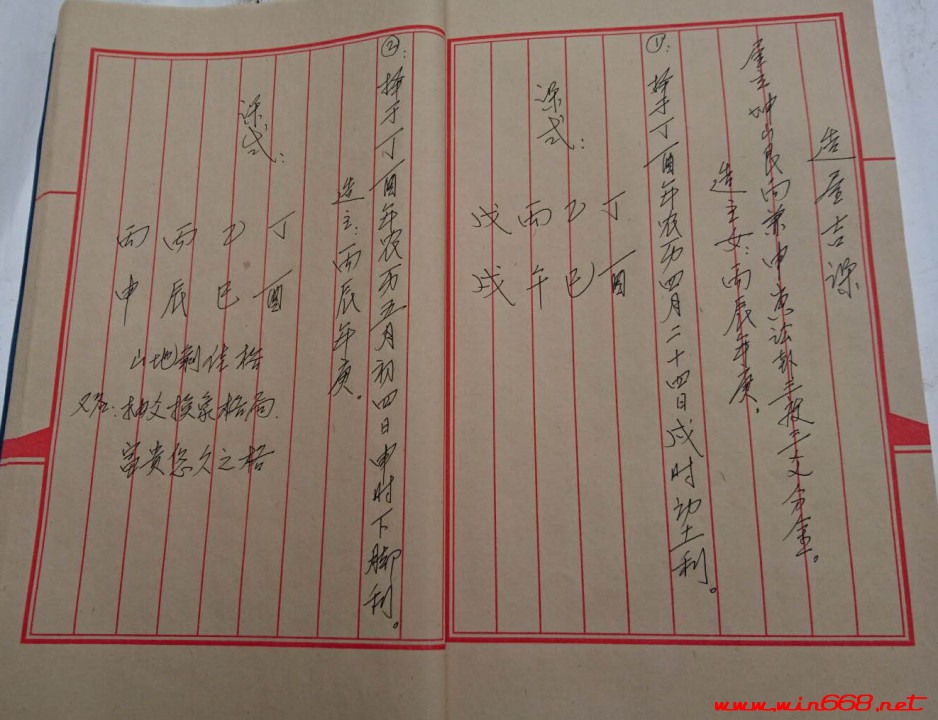 造屋吉课
屋立坤山艮向兼申
造主女：丙辰年庚。
①：择于丁酉年农历四月二十四日戌时动土利。
课式：
丁 乙 丙 戊
酉 巳 午 戌
②：择于丁酉年农历五月初四日申时下脚利。
造主：丙辰年庚。
课式：
丁 乙 丙 丙
酉 巳 辰 申
山地剥佳格
又名：抽爻换象格局.
富贵悠久之格
www.win668.net